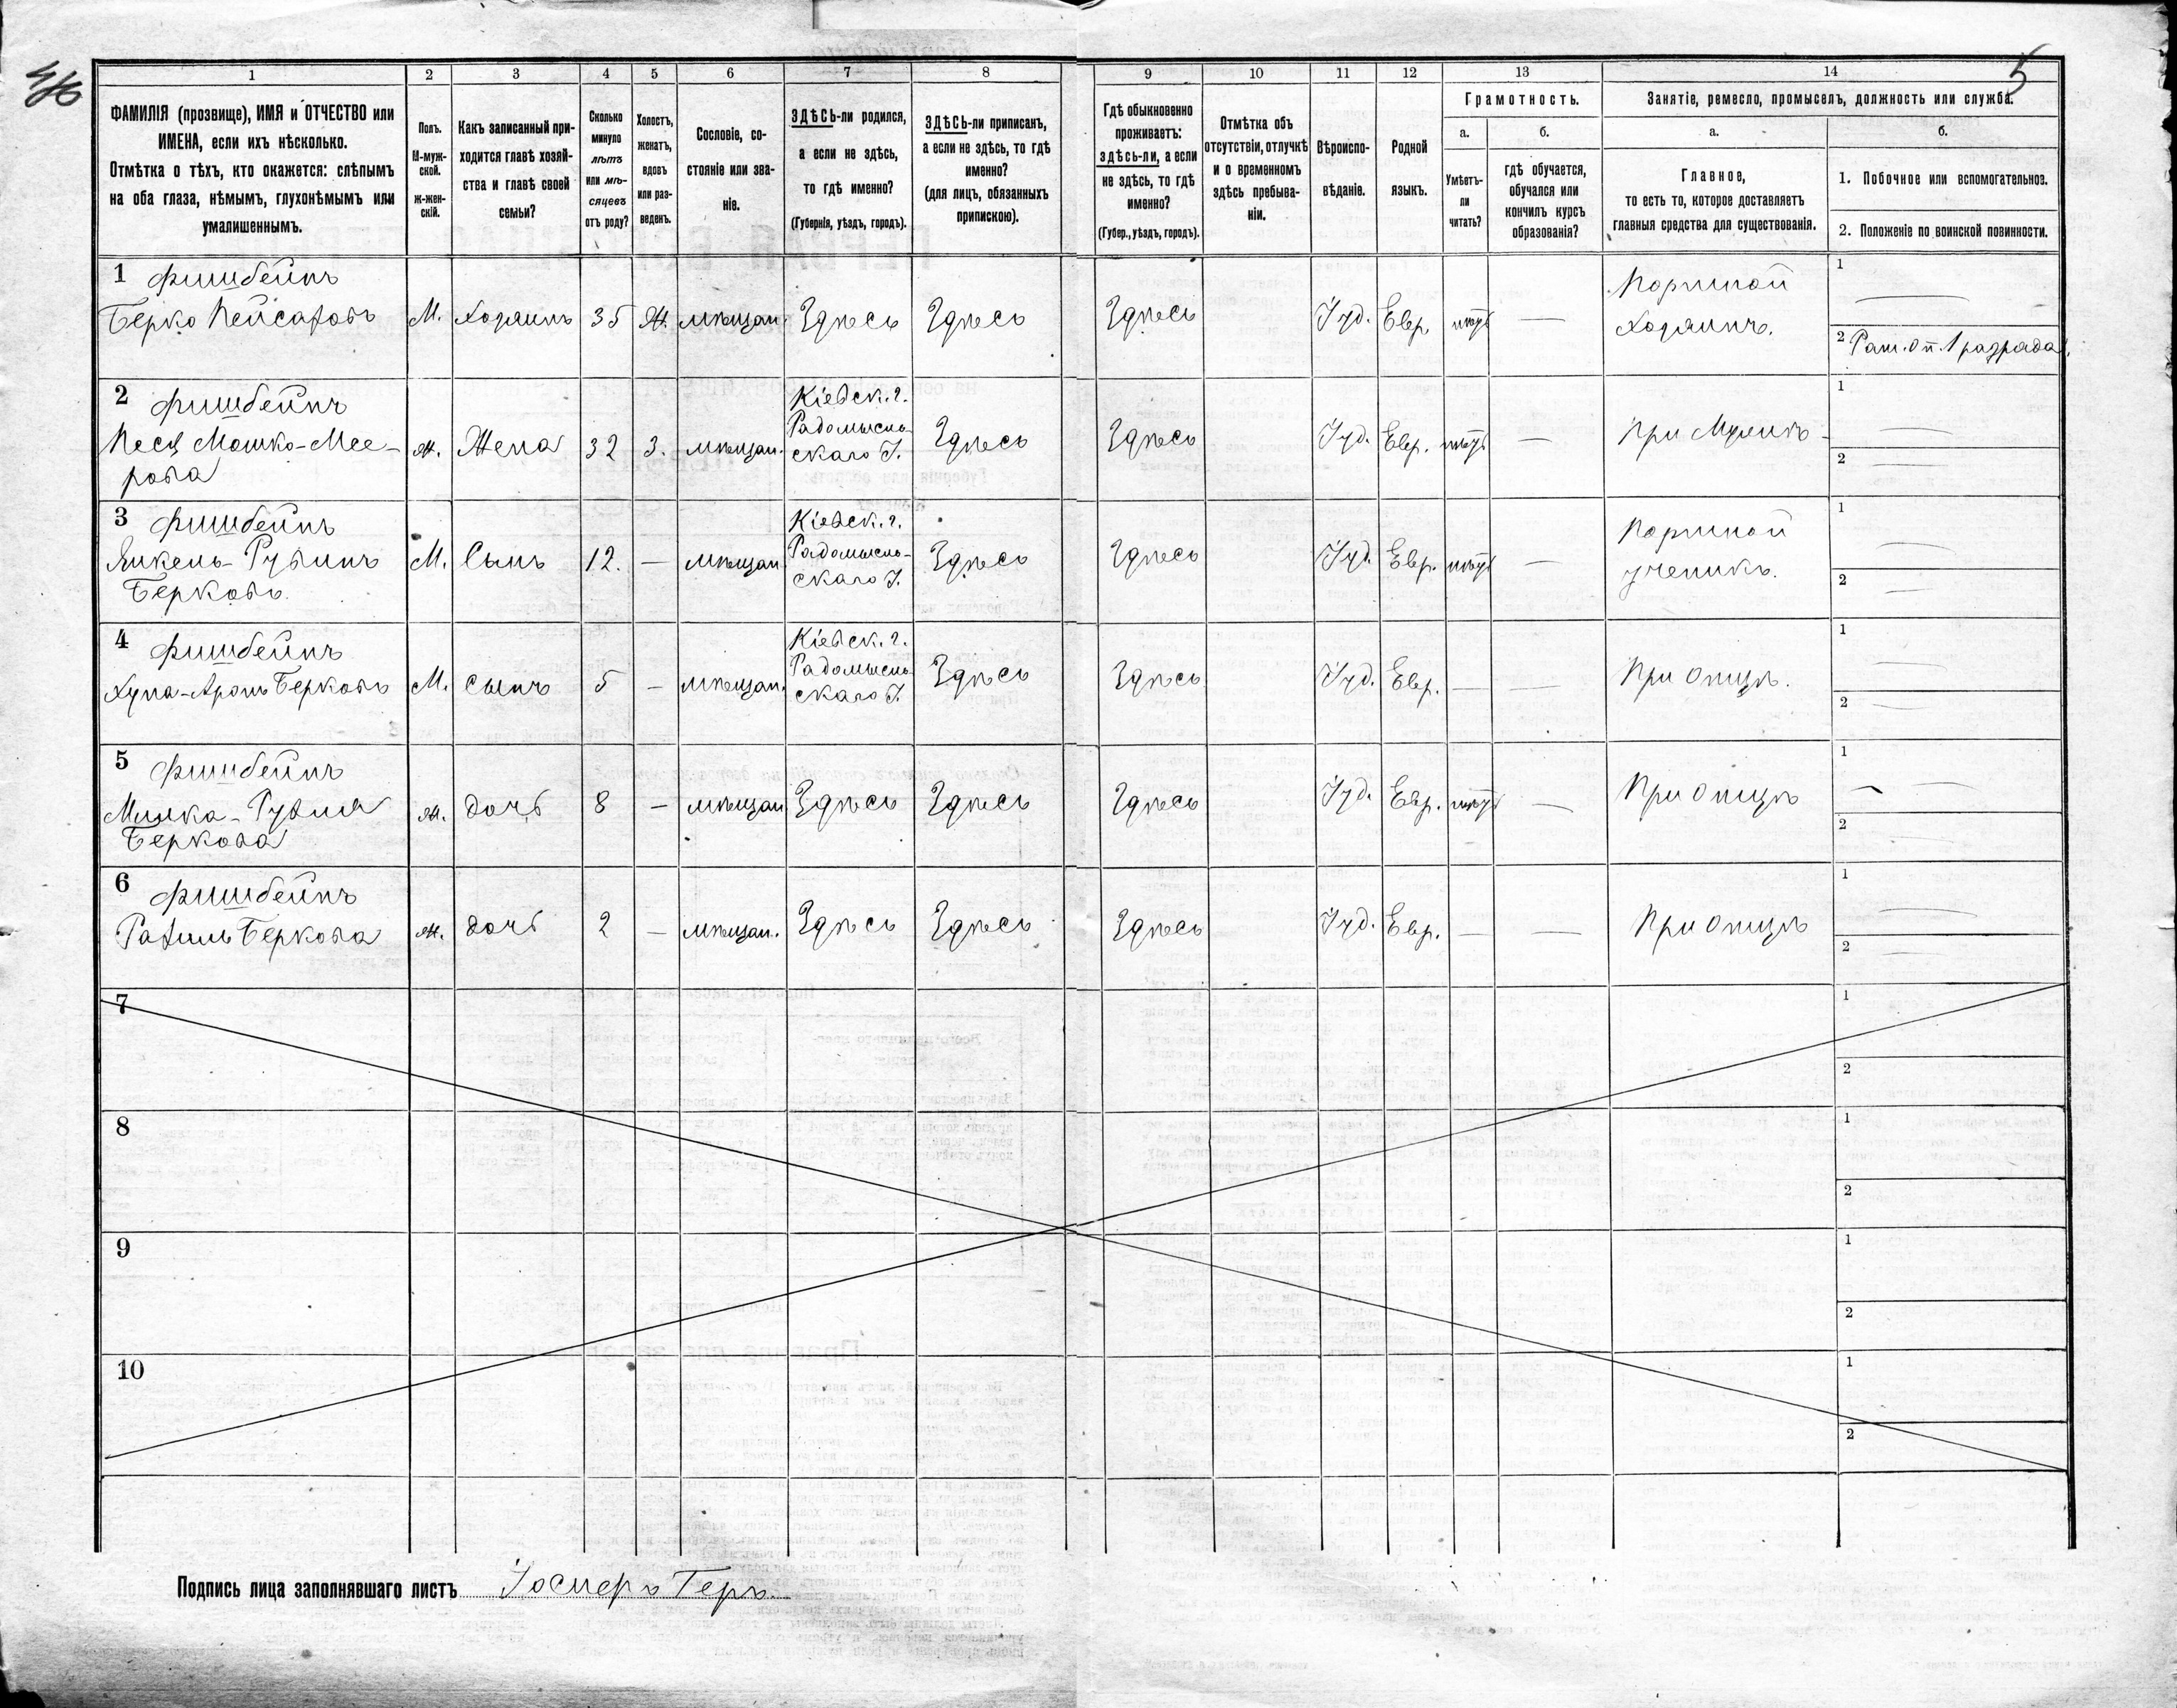 4/б
5
1 2 3 4 5 6 7 8 9 10 11 12 13 14
ФАМИЛІЯ (прозвище), ИМЯ и ОТЧЕСТВО или
ИМЕНА, если ихъ нѣсколько.
Отмѣтка о тѣхъ, кто окажется: слѣпымъ
на оба глаза, нѣмымъ, глухонѣмымъ или
умалишеннымъ.
Полъ.
М-муж-
ской.
Ж-жен-
скій.
Какъ записанный при-
ходится главѣ хозяй-
ства и главѣ своей
семьи?
Сколько
минуло
лѣтъ
или мѣ-
сяцевъ
отъ роду?
Холостъ,
женатъ,
вдовъ
или раз-
веденъ.
Сословіе, со-
стояніе или зва-
ніе.
ЗДѢСЬ-ли родился,
а если не здѣсь,
то гдѣ именно?
(Губернія, уѣздъ, городъ).
ЗДѢСЬ-ли приписанъ,
а если не здѣсь, то гдѣ
именно?
(для лицъ, обязанныхъ
припискою).
Гдѣ обыкновенно
проживаетъ:
здѣсь-ли, а если
не здѣсь, то гдѣ
именно?
(Губер., уѣздъ, городъ).
Отмѣтка объ
отсутствіи, отлучкѣ
и о временномъ
здѣсь пребыва-
ніи.
Вѣроиспо-
вѣданіе.
Родной
языкъ.
Грамотность.
а.
Умѣетъ-
ли
читать?
б.
гдѣ обучается,
обучался или
кончилъ курсъ
образованія?
Занятіе, ремесло, промыселъ, должность или служба.
а.
Главное,
то есть то, которое доставляетъ
главныя средства для существованія.
б.
1. Побочное или вспомогательное.
2. Положеніе по воинской повинности.
1 Фишбейнъ
Берко Пейсаховъ М. Хозяинъ 35 Ж. мѣщан. Здѣсь Здѣсь Здѣсь Іуд. Евр. — Портной
Хозяинъ.
1 —
2 Рат. оп. 1 разряда.
2 Фишбейнъ
Песя Мошко-Мее-
рова ж. Жена 32 З. мѣщан. Кіевск. г.
Радомысль-
скаго У. Здѣсь Здѣсь Іуд. Евр. — При Мужѣ
1 —
2 —
3 Фишбейнъ
Янкель-Рувинъ
Берковъ. М. Сынъ 12. — мѣщан. Кіевск. г.
Радомысль-
скаго У. Здѣсь Здѣсь Іуд. Евр. — Портной
ученикъ.
1 —
2 —
4 Фишбейнъ
Хуна-Аронъ Берковъ М. Сынъ 5 — мѣщан. Кіевск. г.
Радомысль-
скаго У. Здѣсь Здѣсь Іуд. Евр. — — При Отцѣ.
1 —
2 —
5 Фишбейнъ
Берковa ж. дочь 8 — мѣщан. Здѣсь Здѣсь Здѣсь Іуд. Евр. — При Отцѣ
1 —
2 —
6 Фишбейнъ
Рахиль Беркова ж. дочь 2 — мѣщан. Здѣсь Здѣсь Здѣсь Іуд. Евр. — — При Отцѣ
1 —
2 —
7 1
2
8 1
2
9 1
2
10 1
2
Подпись лица заполнявшаго листъ